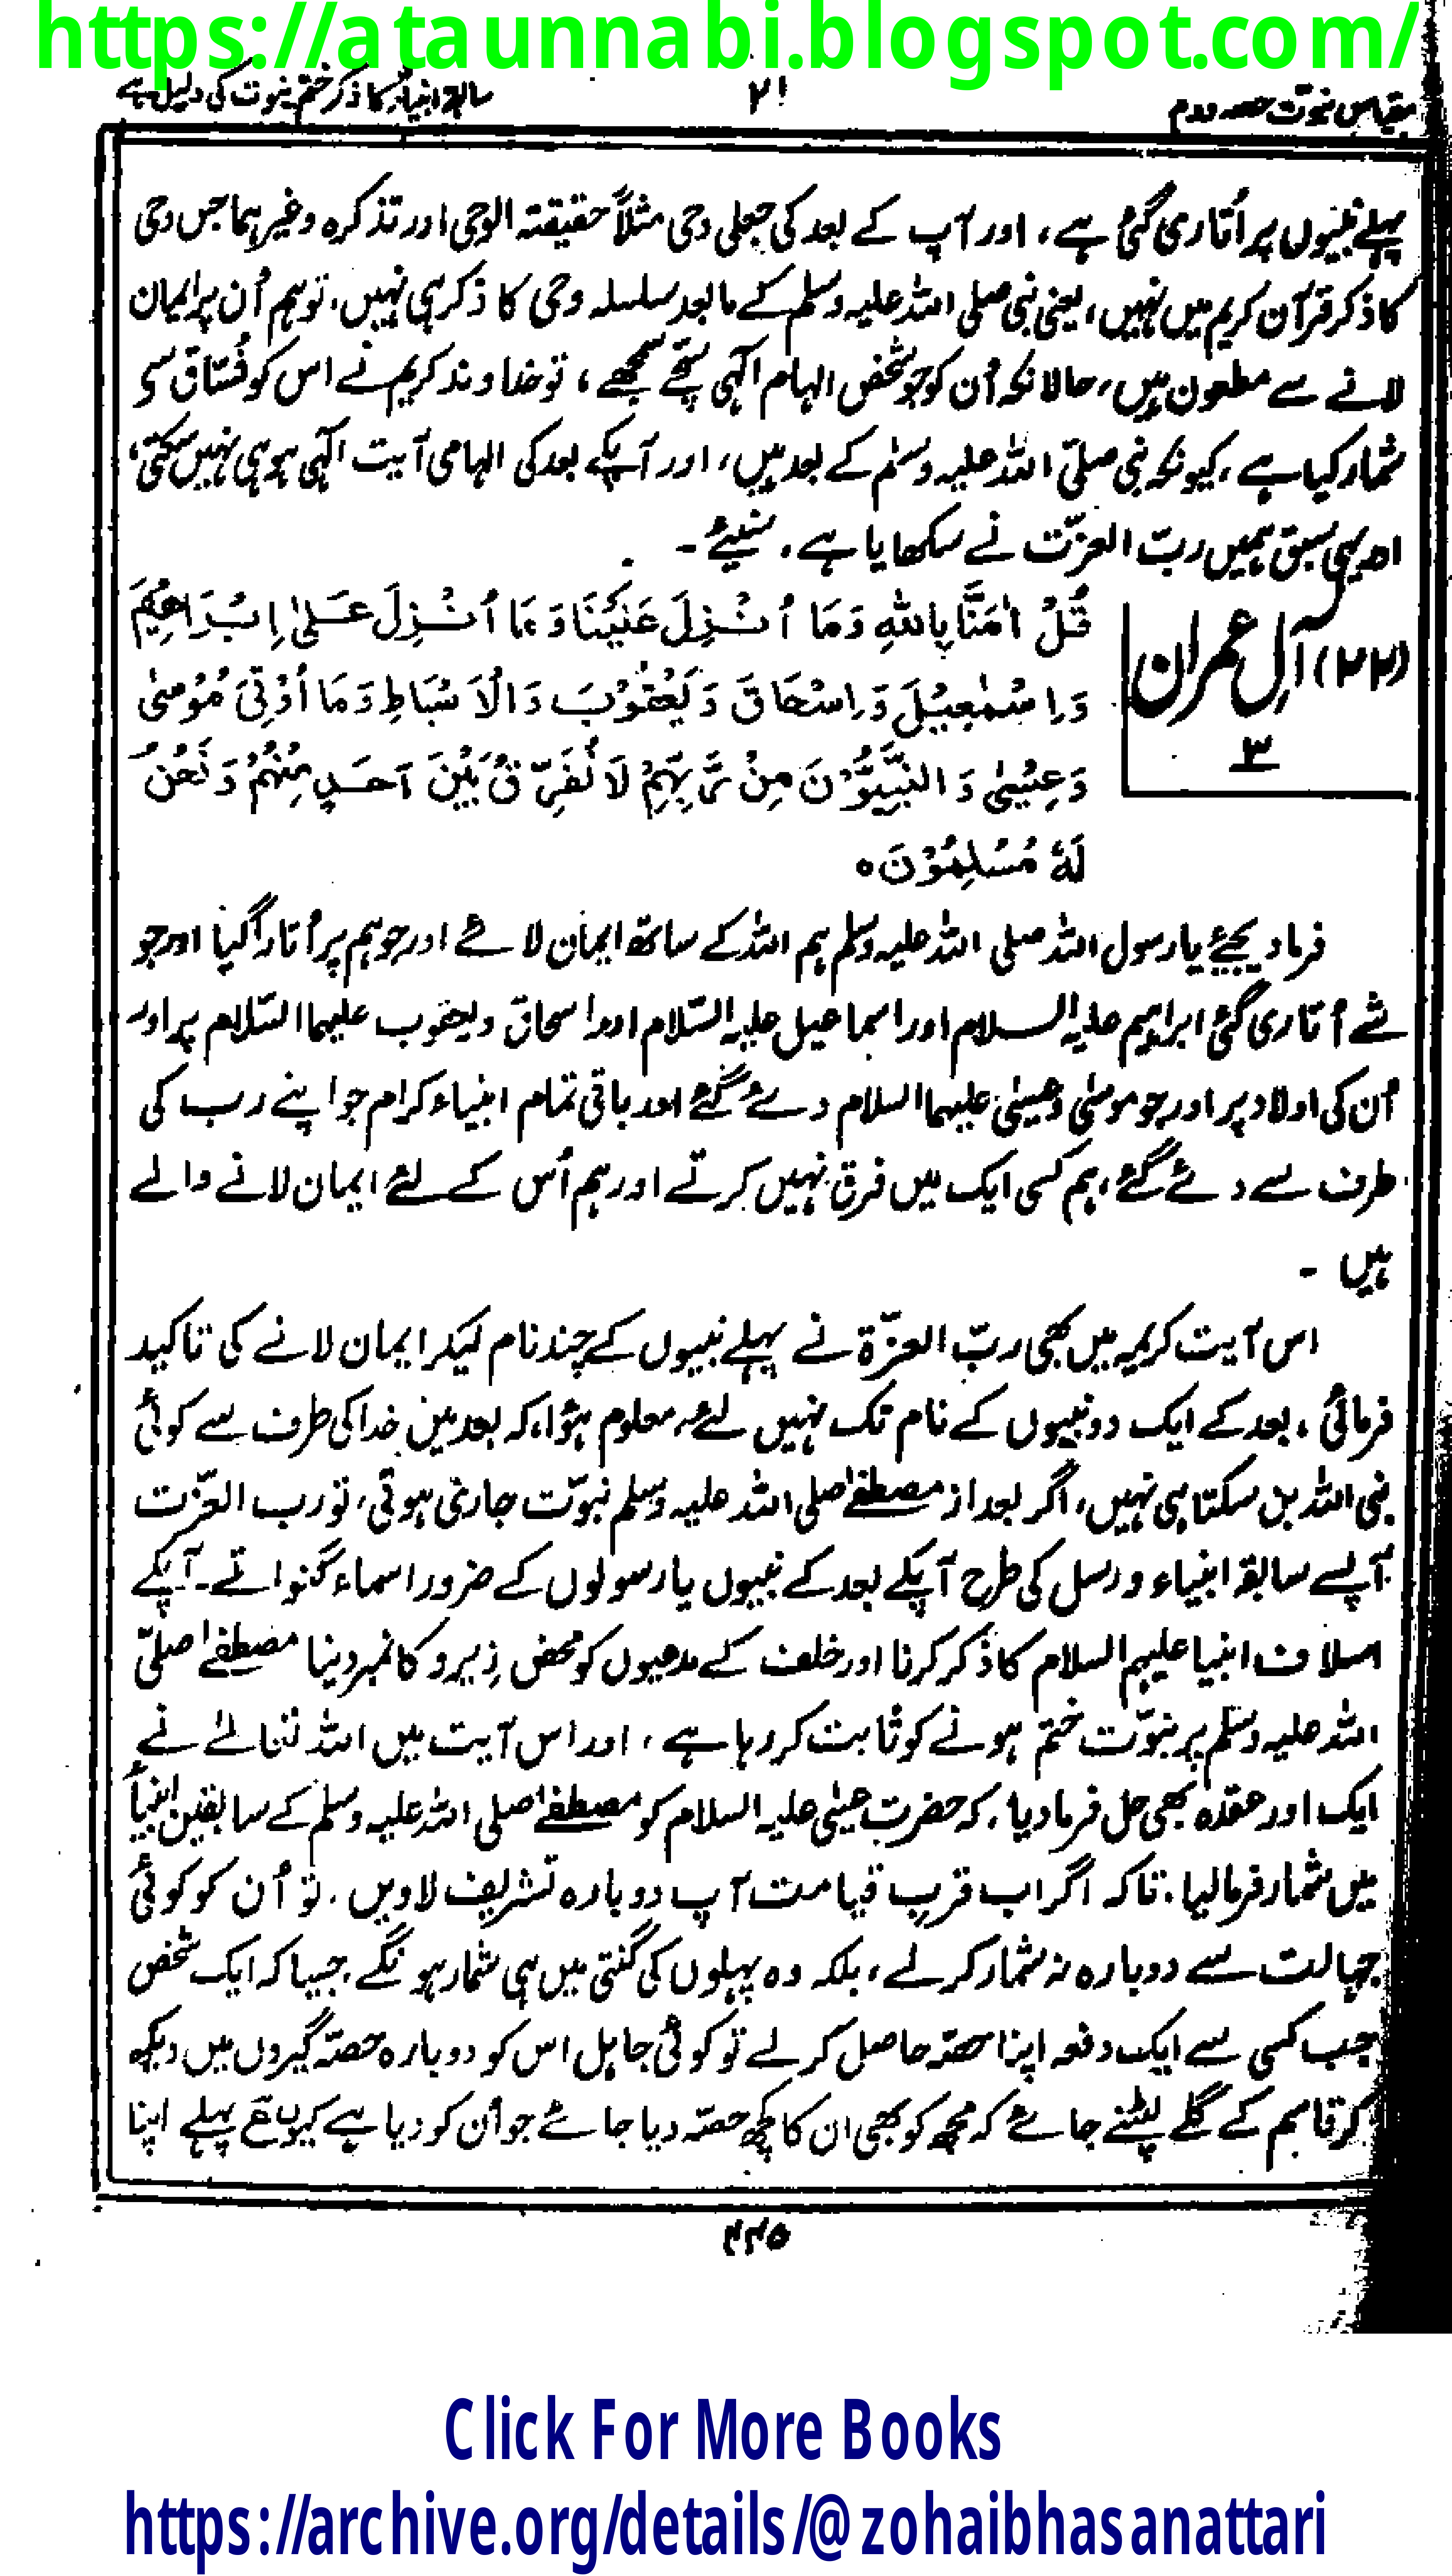 https://ataunnabi.blogspot.com/
مقیاس نبوت حصہ دوم
۲۱
سابقہ انبیاء کا ذکر ختم نبوت کی دلیل ہے
پہلے نبیوں پر اُتاری گئی ہے، اور آپ کے بعد کی جعلی وحی مثلاً حقیقتہ الوحی اور تذکرہ وغیرہما جس وحی
کا ذکر قرآن کریم میں نہیں، یعنی نبی صلی اللہ علیہ وسلم کے مابعد سلسلہ وحی کا ذکر ہی نہیں، تو ہم اُن پر ایمان
لانے سے مطعون ہیں، حالانکہ اُن کو جو شخص الہام الٰہی سچے سمجھے، تو خداوند کریم نے اس کو فُسّاق سی
شمار کیا ہے، کیونکہ نبی صلّی اللہ علیہ وسلم کے بعد ہیں، اور آپکے بعد کی الہامی آیت الٰہی ہو ہی نہیں سکتی،
اور یہی سبق ہمیں ربّ العزّت نے سکھایا ہے، سنیئے ۔
(۲۲) آلِ عمران
۳
قُلْ اٰمَنَّا بِاللّٰهِ وَمَا اُنْزِلَ عَلَيْنَا وَمَا اُنْزِلَ عَلٰى اِبْرَاهِيْمَ
وَاِسْمٰعِيْلَ وَاِسْحَاقَ وَيَعْقُوْبَ وَالْاَسْبَاطِ وَمَا اُوْتِىَ مُوْسٰى
وَعِيْسٰى وَالنَّبِيُّوْنَ مِنْ رَّبِّهِمْ لَا نُفَرِّقُ بَيْنَ اَحَدٍ مِنْهُمْ وَنَحْنُ
لَهٗ مُسْلِمُوْنَ ه
فرما دیجئے یا رسول اللہ صلی اللہ علیہ وسلم ہم اللہ کے ساتھ ایمان لائے اور جو ہم پر اُتارا گیا اور جو
شے اُتاری گئی ابراہیم علیہ السلام اور اسماعیل علیہ السّلام اور اسحاق و یعقوب علیہما السّلام پر اور
اُن کی اولاد پر اور جو موسیٰ و عیسیٰ علیہما السلام دئے گئے اور باقی تمام انبیاء کرام جو اپنے رب کی
طرف سے دئے گئے، ہم کسی ایک میں فرق نہیں کرتے اور ہم اُس کے لئے ایمان لانے والے
ہیں ۔
اس آیت کریمہ میں بھی ربّ العزّۃ نے پہلے نبیوں کے چند نام لیکر ایمان لانے کی تاکید
فرمائی، بعد کے ایک دو نبیوں کے نام تک نہیں لئے، معلوم ہؤا، کہ بعد میں خدا کی طرف سے کوئی
نبی اللہ بن سکتا ہی نہیں، اگر بعد از مصطفٰے صلی اللہ علیہ وسلم نبوّت جاری ہوتی، تو رب العزّت
آپسے سابقہ انبیاء و رسل کی طرح آپکے بعد کے نبیوں یا رسولوں کے ضرور اسماء گنواتے۔ آپکے
اسلاف انبیا علیہم السلام کا ذکر کرنا اور خلف کے مدعیوں کو محض زیرو کا نمبر دینا مصطفٰے صلّی
اللہ علیہ وسلم پر نبوّت ختم ہونے کو ثابت کر رہا ہے، اور اس آیت میں اللہ تعالےٰ نے
ایک اور عقدہ بھی حل فرما دیا، کہ حضرت عیسٰی علیہ السلام کو مصطفٰے صلی اللہ علیہ وسلم کے سابقین انبیاء
میں شمار فرما لیا، تاکہ اگر اب قرب قیامت آپ دوبارہ تشریف لاویں، تو اُن کو کوئی
جہالت سے دوبارہ نہ شمار کر لے، بلکہ وہ پہلوں کی گنتی میں ہی شمار ہونگے، جیسا کہ ایک شخص
جب کسی سے ایک دفعہ اپنا حصّہ حاصل کر لے تو کوئی جاہل اس کو دوبارہ حصّہ گیروں میں دیکھ
کر قاسم کے گلے لپٹنے جائے کہ مجھ کو بھی ان کا کچھ حصّہ دیا جائے جو اُن کو دیا ہے کیوں پہلے اپنا
۲۲۵
Click For More Books
https://archive.org/details/@zohaibhasanattari